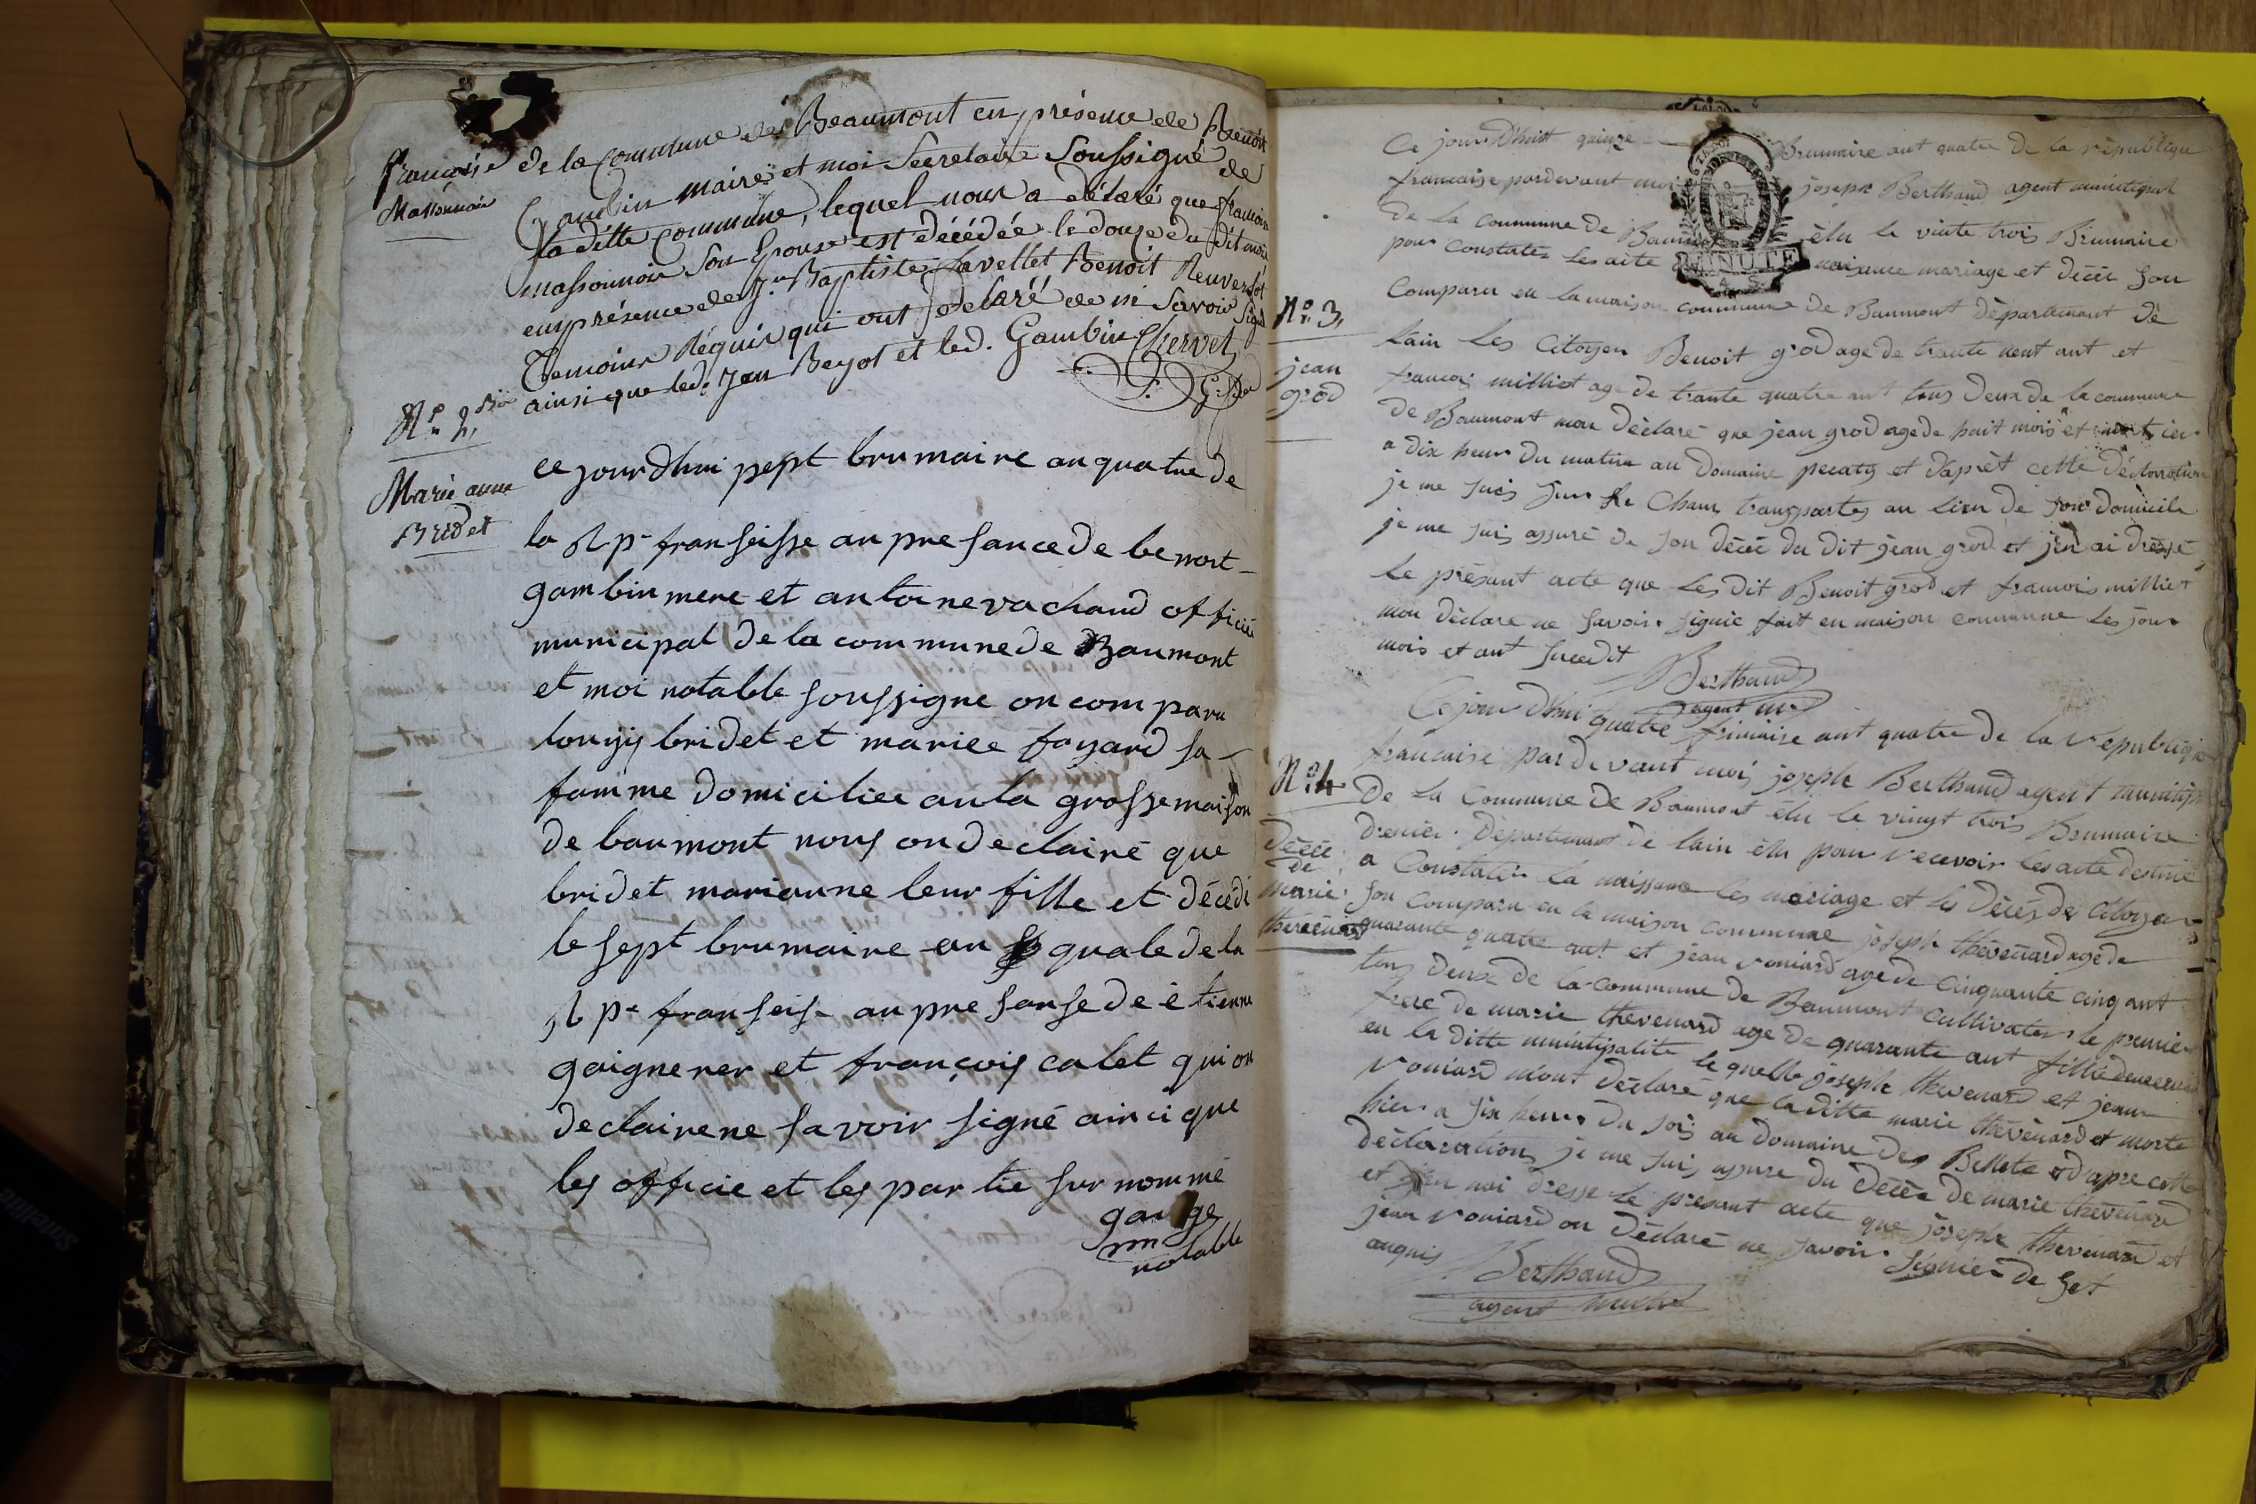 françoise
Massonnoir
de la Commune de Beaumont en présence de Benoit
Gambin maire et moi Secretaire Soussigné de
la ditte Commune, lequel nous a déclaré que françoise
massonnoir Son Epouse est décédée le douze du dit mois
en présence de Jn Baptiste Favellet Benoit Reuverdot
Témoins Réquis qui ont declaré de ni Savoir Signé
ainsi que led. Jean Beyot et led. Gambin Chervet
N° 2,
Marie anne
Bridet
ce jourdhui sept brumaire an quatre de
la Rp franseisse an presance de benoit
gambin mere et antoine vachaud officié
municipal de la commune de Baumont
et moi notable soussigne on comparu
louyy bridet et mariee fayard sa
famme domiciliee an la grosse maison
de baumont nous on declairé que
bridet marianne leur fille et décédé
le sept brumaire an quale de la
Rp franseise an presanse de étienne
gaignerer et françois calet qui on
declaire ne savoir signé ainci que
les officie et les partie sur nommé
notable
Ce jour Dhuit quinze Brumaire ant quatre de la république
francaise pardevant moi joseph Berthaud agent municipal
de la commune de élu le vinte trois Brumaire
pour Constater les acte naissance mariage et décée Son
Comparu en la maison commune de Baumont Département de
lain Les Citoyen Benoit grod age de trante neuf ant et
francois milliet age de trante quatre ant tous Deux de la commune
de Baumont mon Déclaré que jean grod age de huit mois et
a dix heur Du matin au Domaine et Daprèt cette Déclaration
je me suis Sur Le Cham transportez au lieu de son Domicile
je me suis assuré de Son décée du dit jean grod et jen ai dressé
Le présant acte que Les dit Benoit grod et francois milliet
mon déclare ne Savoir signié fait en maison commune Les jour
mois et ant Susdit
N° 3,
jean
grod
Berthaud
agent m
Ce jour Dhui quatre frimaire ant quatre de la république
francaise par devant moi joseph Berthaud agent
De la Commune de Baumont élu le vingt trois Brumaire
Dernier Département de lain élu pour recevoir les acte destiné
a Constater la naissance les mariage et les Décés de Citoyen
Son Comparu en la maison commune joseph thevenard age de
quarante quatre ant et jean vouiard age de Cinquante cinq ant
tous deux de la Commune de Beaumont cultivater le premier
frere de marie thevenard age de quarante ant fille
en la ditte municipalite le quelle joseph thevenard et jean
vouiard mont déclaré que la ditte marie thévénard et morte
hier a six heur Du soir au Domaine des Billete et d'apre cette
déclaration je me suis assure du Décée de marie thevenard
et jen nai dresse Le présant acte que joseph thevenard et
jean vouiard on Déclaré ne Savoir Signier de Set
anquis
N° 4
Décée
de
marie
Berthaud
agent
MINUTE